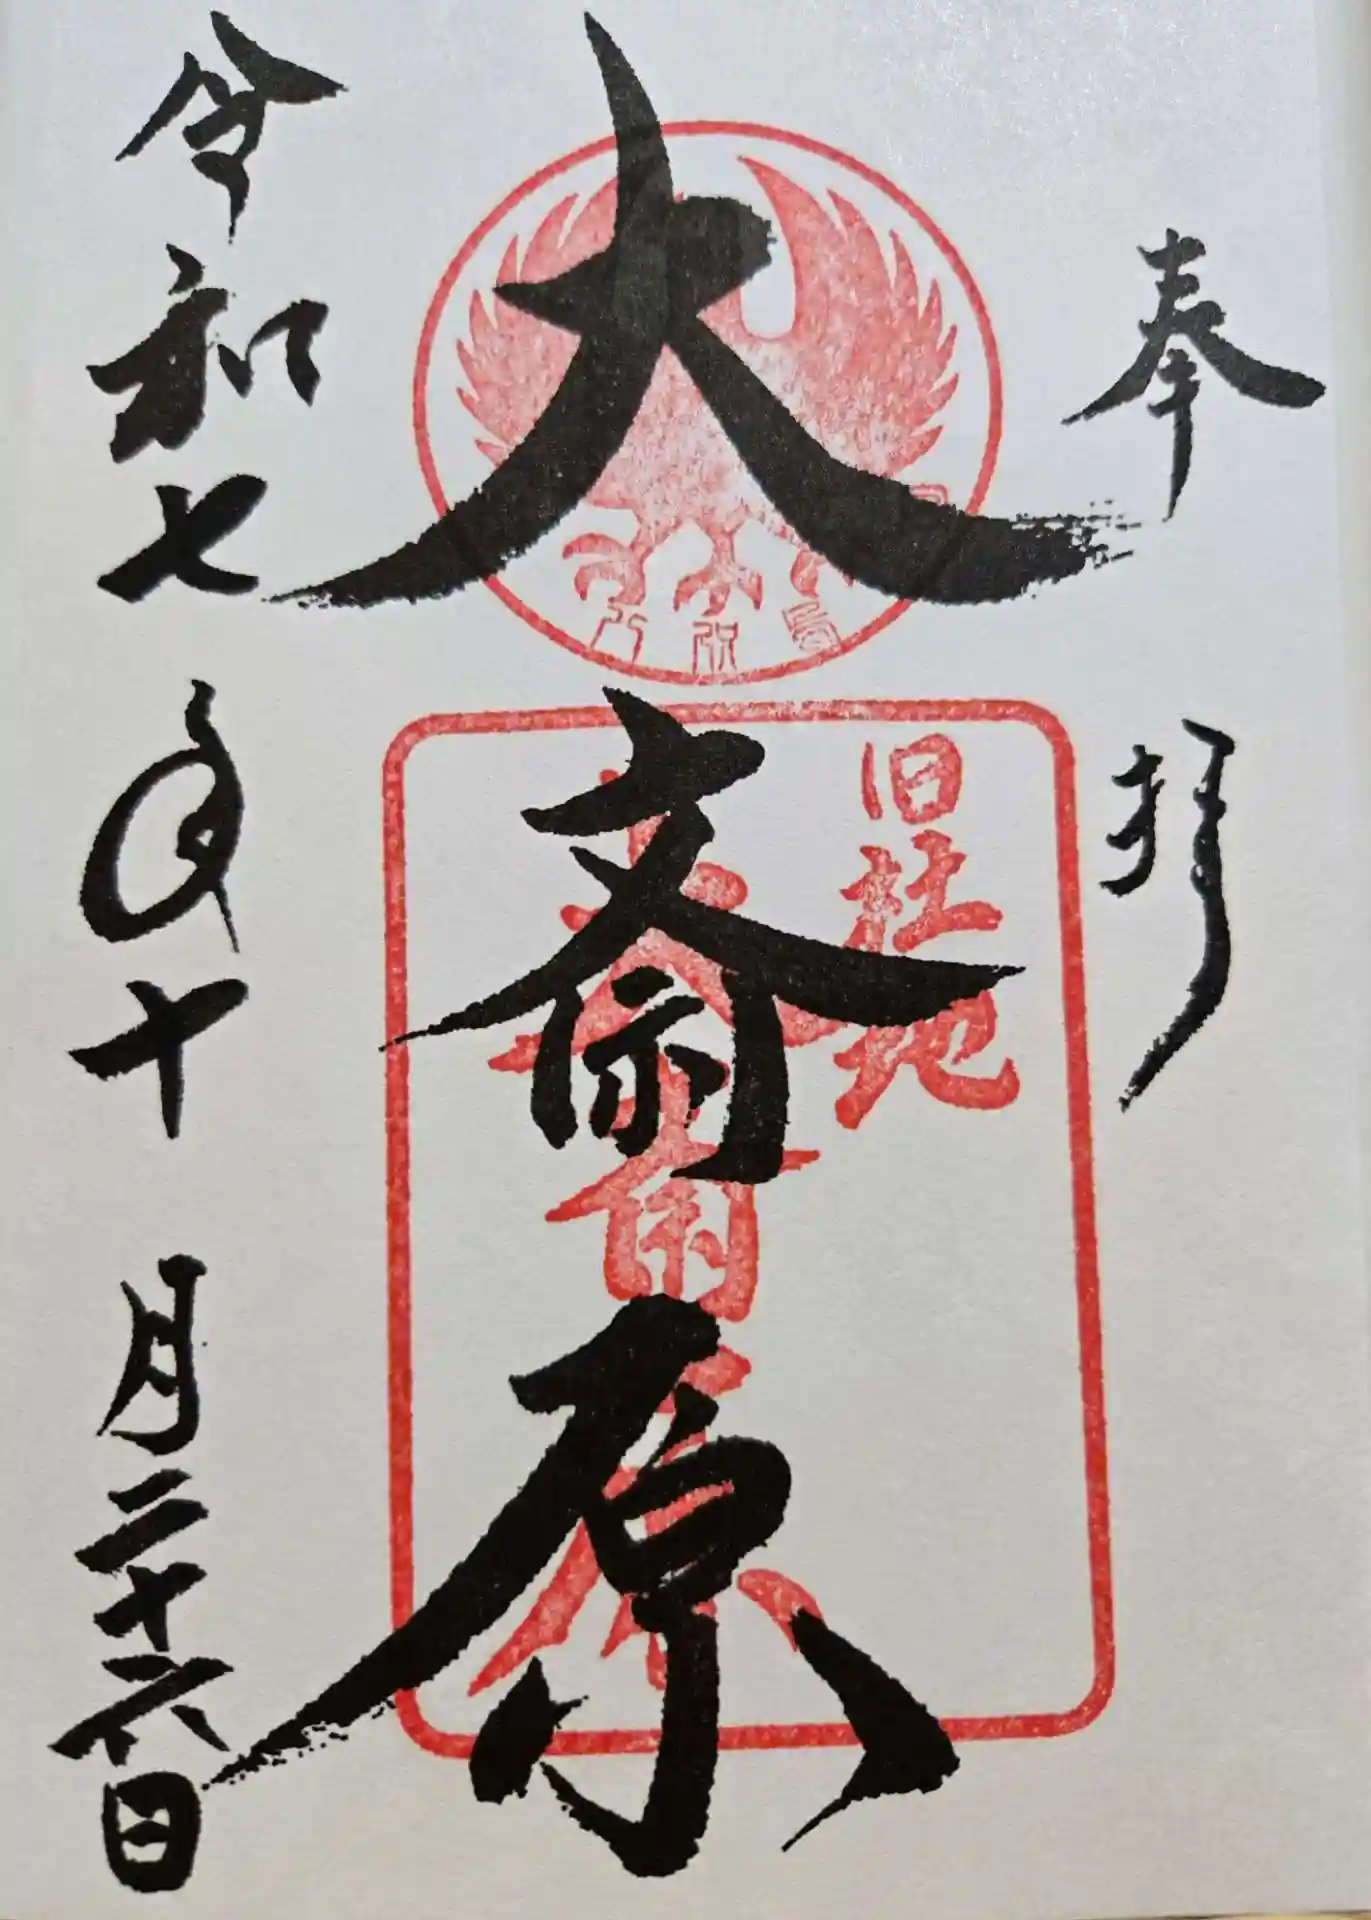 奉
拝
大斎原
旧社地
大斎原
令和七年十月二十六日